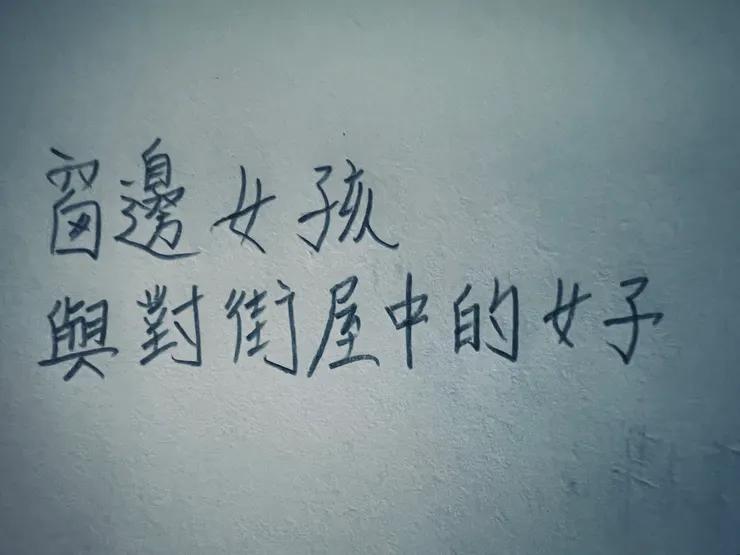 窗邊女孩
與對街屋中的女子